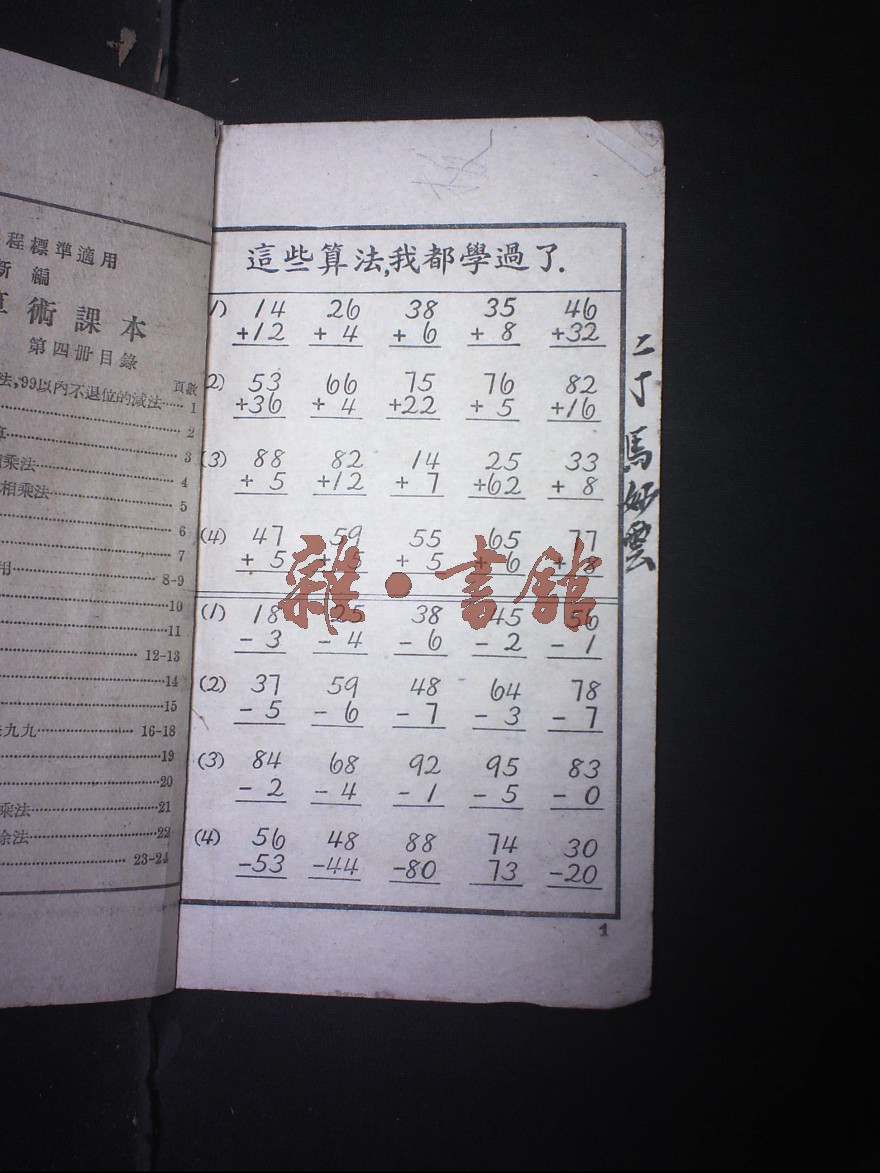 程標準適用
新編
算術課本
第四冊目錄
頁數
法,99以內不退位的減法……1
……2
算……3
乘法……4
相乘法……5
……6
……7
用……8-9
……10
……11
……12-13
……14
……15
九九……16-18
……19
……20
乘法……21
除法……22
……23-24
這些算法,我都學過了.
(1) 14 26 38 35 46
+12 + 4 + 6 + 8 +32
(2) 53 66 75 76 82
+36 + 4 +22 + 5 +16
(3) 88 82 14 25 33
+ 5 +12 + 7 +62 + 8
(4) 47 59 55 65 77
+ 5 + 5 + 5 + 6 + 8
(1) 18 25 38 45 56
- 3 - 4 - 6 - 2 - 1
(2) 37 59 48 64 78
- 5 - 6 - 7 - 3 - 7
(3) 84 68 92 95 83
- 2 - 4 - 1 - 5 - 0
(4) 56 48 88 74 30
-53 -44 -80 73 -20
1
二丁 馬妙雲
雜·書館